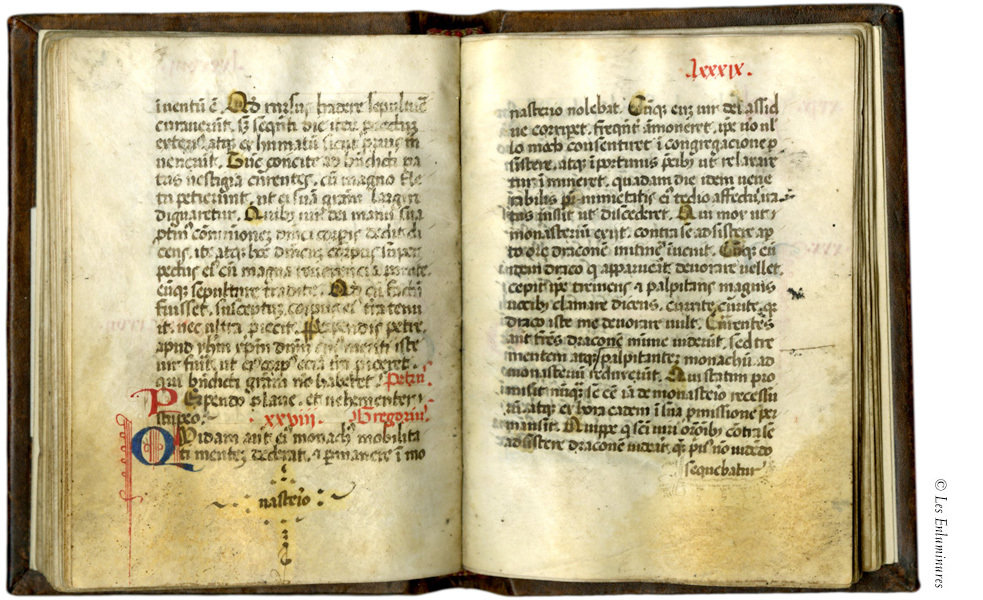 inuentū ē. Qd̄ rursus tradere sepulture
curauerūt, sꝫ seqn̄ti die iteꝝ ꝓiectuꝫ
exterius atqꝫ inhumatū sicut prius in
uenerūt. Tūc concite ad bn̄dicti pa
tris uestigia currentes, cū magno fle
tu petierunt, ut ei suā gr̄am largire
dignaretur. Quibꝫ uir dei manu sua
ꝓtinꝰ cōmunionez dn̄ici corꝑis dedit di
cens, ite atqꝫ hoc dn̄icuꝫ corpus suꝑ
pectus eiꝰ cū magna reuerencia ponite
eūqꝫ sepulture tradite. Qd̄ cū factū
fuisset, susceptuꝫ corpus eiꝰ terra tenu
it, nec ultra ꝓiecit. Perpendis petre,
apud yhm̄ xp̄m dn̄m cuiꝰ meriti iste
uir fuit, ut eiꝰ corpꝰ eciā terra ꝓiceret,
qui bn̄dicti gr̄am nō haberet. Petrus.
Perpendo plane, et uehementer
stupeo. xxviii. Gregoriꝰ
Quidam aut̄ eiꝰ monachꝰ mobilita
ti mentez dederat, ⁊ ꝑmanere ī mo
nasterio
lxxxix.
nasterio nolebat. Cūqꝫ eū uir dei assid
ue corriꝑet, frequn̄t̄ amoneret, ip̄e uo nl
lo modo consentiret ī congregacione ꝑ
sistere, atqꝫ īportunis p̄cibꝫ ut relaxare
tur īmineret, quadam die idem uene
rabilis pr̄ nimietatis eiꝰ tedio affectꝰ, ira
tus iussit ut discederet. Qui mox ut
monasteriū exiit, contra se adsistere ap
to ore draconē ī itinere īuenit. Cūqꝫ eū
idem draco q̄ apparuerat deuorare uellet,
cepit ip̄e tremens ⁊ palpitans magnis
uocibꝫ clamare dicens, currite, currite, qꝛ
draco iste me deuorare uult. Currentes
aut̄ fr̄es draconē minime uiderūt, sed tre
mentem atqꝫ palpitantez monachū ad
monasteriū reduxerūt. Qui statim pro
misit nūqꝫ se eē iā de monasterio recessu
rū, atqꝫ ex hora eadem ī sua ꝓmissione ꝑ
mansit. Quippe q̄ sc̄i uiri or̄onibꝫ contra se
adsistere draconē uiderat, quē pꝰ nō uidēdo
sequebatur
© Les Enluminures